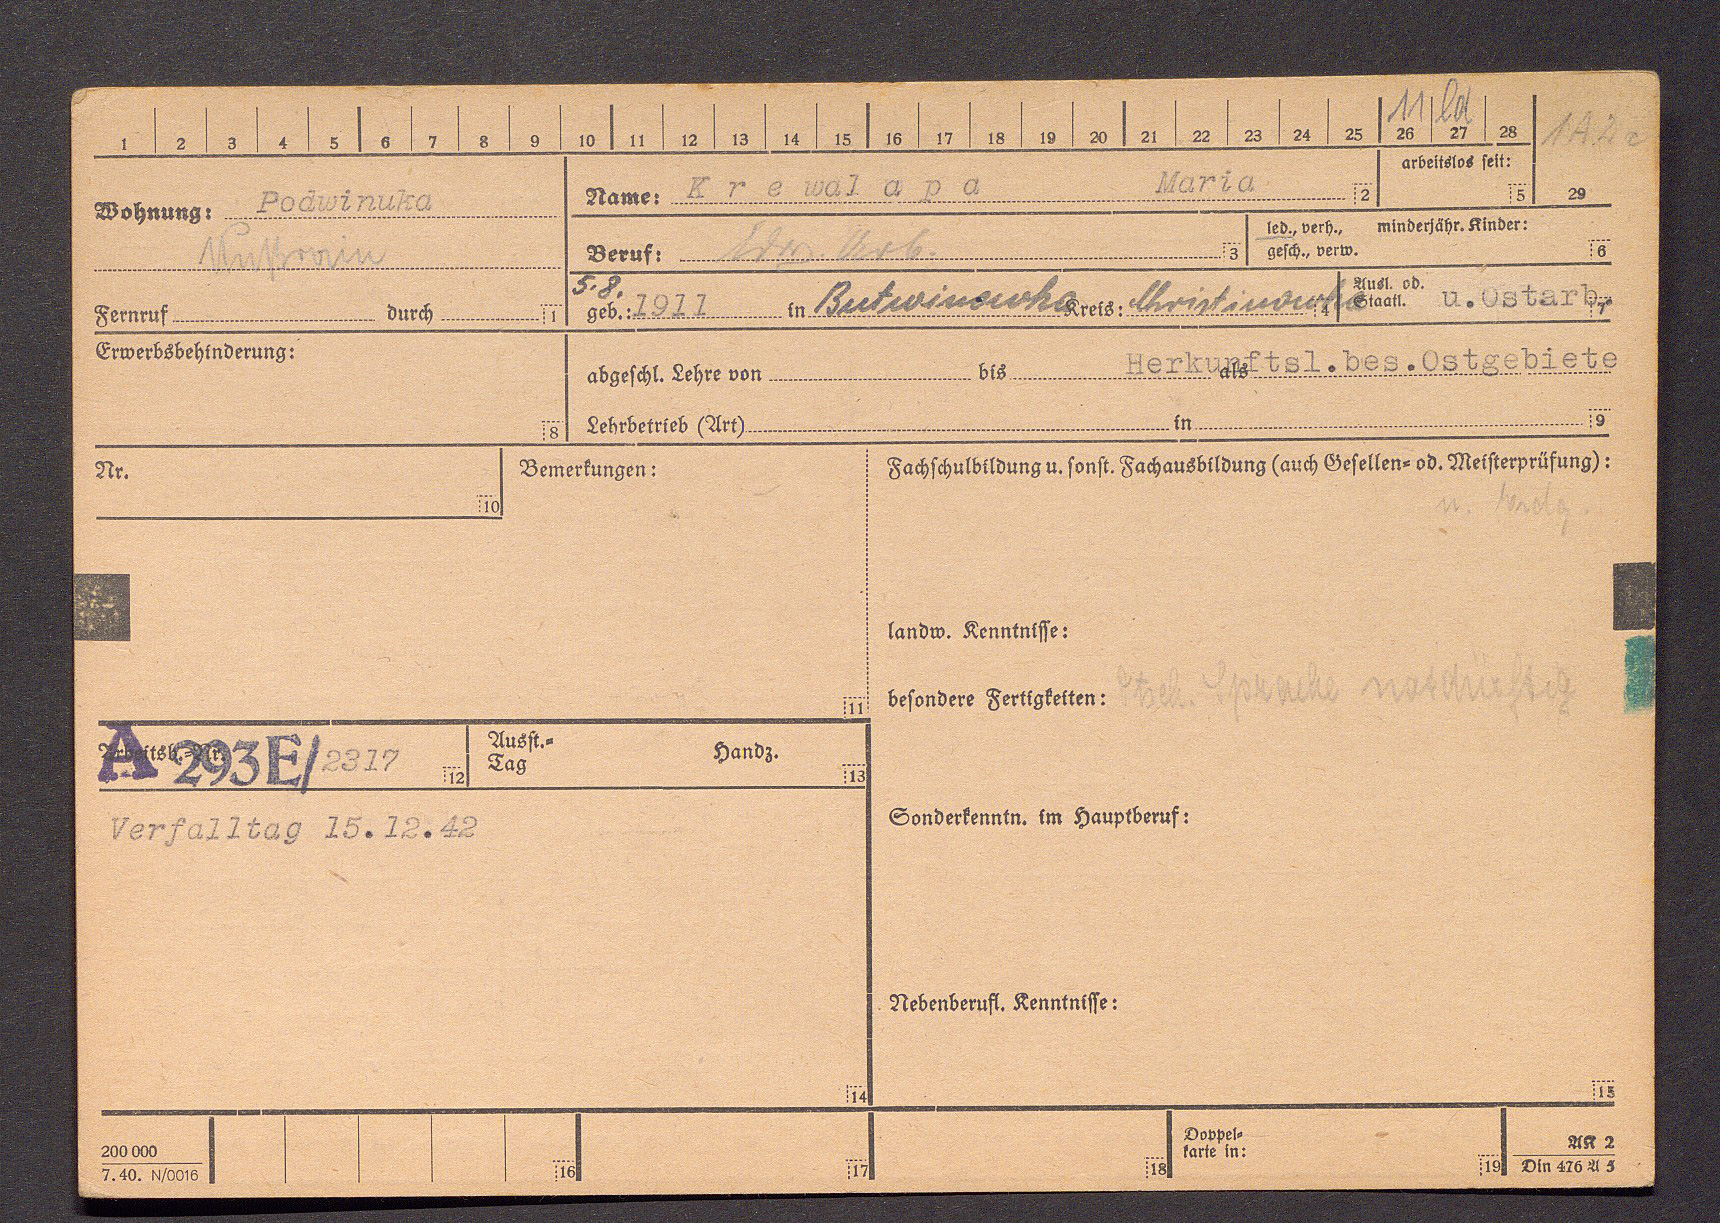 1 2 3 4 5 6 7 8 9 10 11 12 13 14 15 16 17 18 19 20 21 22 23 24 25 26 27 28
11 ld
1A2c
29
Wohnung: Podwinuka
Fernruf durch 1
Name: Krewalapa Maria 2
arbeitslos seit:
5
Beruf: Ldw. Arb. 3
led., verh.,
gesch., verw.
minderjähr. Kinder:
6
5.8.
geb.: 1911 in Butwinowka Kreis: Christinowka 4
Ausl. od.
Staatl. u. Ostarb. 7
Erwerbsbehinderung:
8
Herkunftsl.bes.Ostgebiete
abgeschl. Lehre von bis als
Lehrbetrieb (Art) in 9
Nr.
10
Bemerkungen:
11
Fachschulbildung u. sonst. Fachausbildung (auch Gesellen= od. Meisterprüfung):
landw. Kenntnisse:
besondere Fertigkeiten: dtsch. Sprache notdürftig
Arbeitsb.=Nr.
A 293E/2317 12
Ausst.=
Tag
Handz.
13
Verfalltag 15.12.42
14
Sonderkenntn. im Hauptberuf:
Nebenberufl. Kenntnisse:
15
200 000
7. 40. N/0016
16
17
18
Doppel=
karte in:
19
AK 2
Din 476 A 5